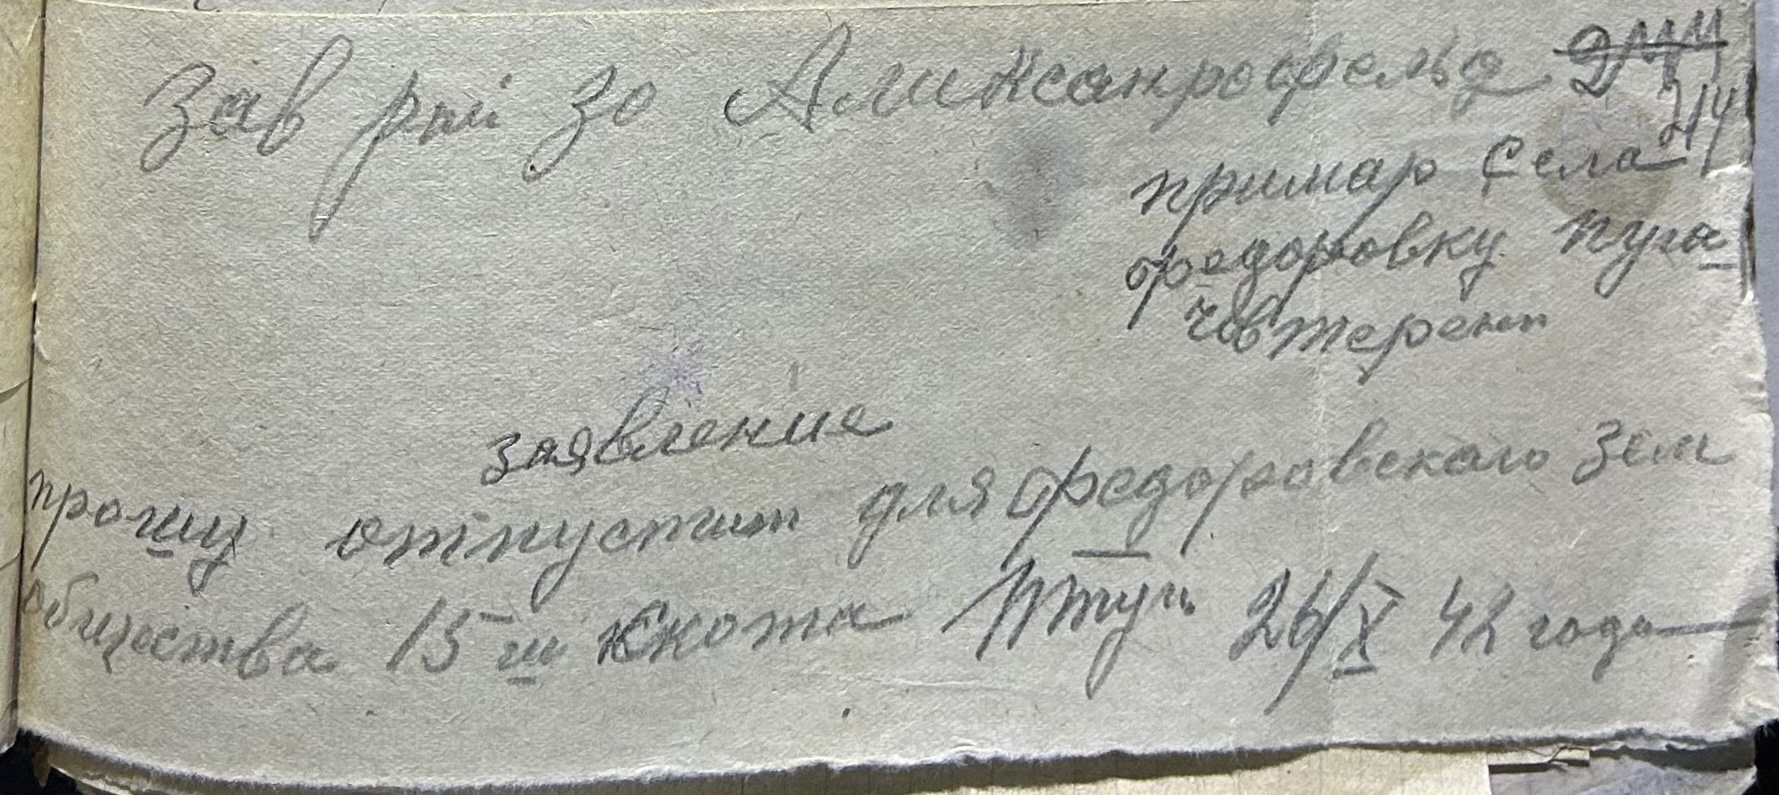 Зав рай зо Аликсанрофельд
214
примар Села
Федоровку пуга
чов терент
заявление
прошу отпустит для Федоровского зем
общества 15 ш скота 26/X 42 года